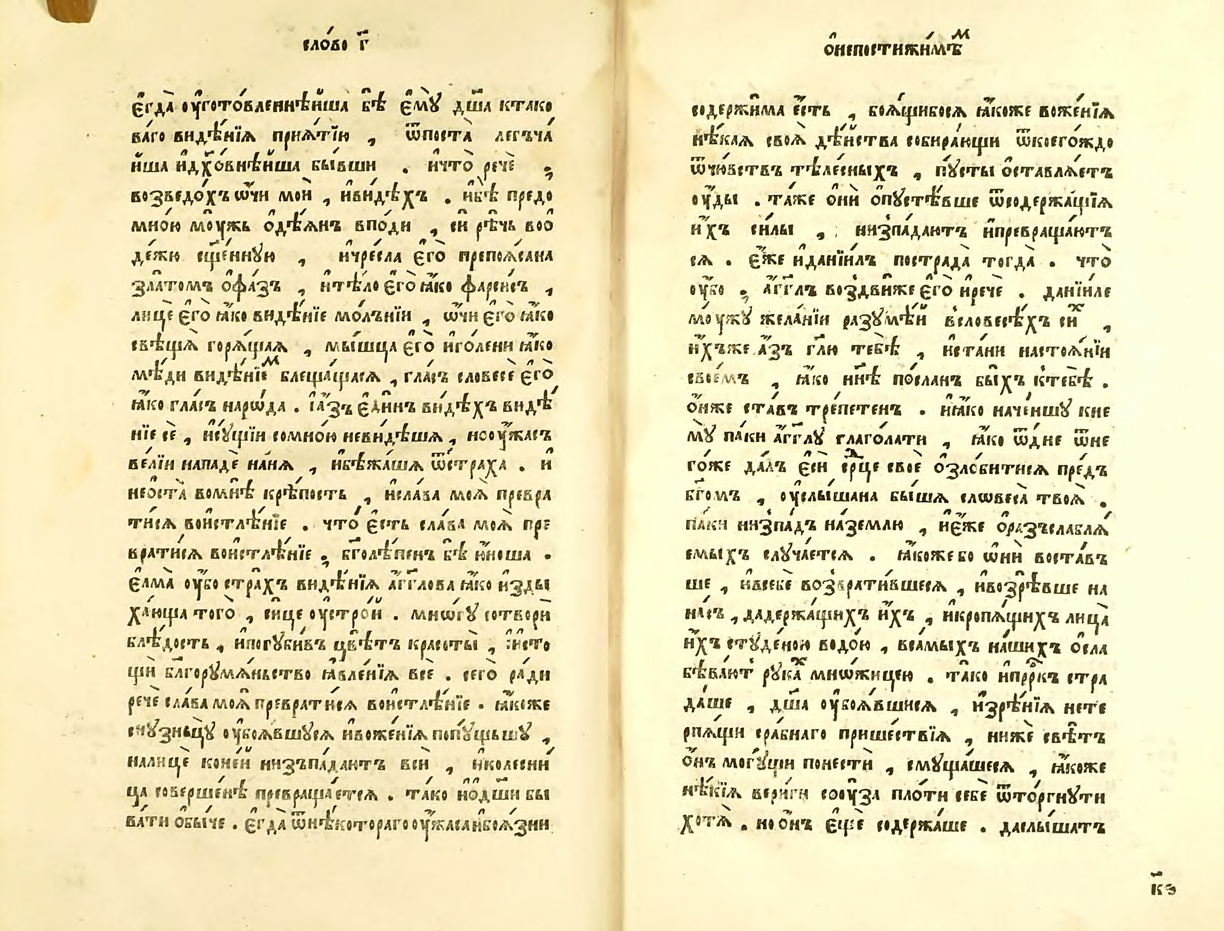 сло́во г҃
є҆гда̀ оу҆гото́вленнѣйша бѣ̀ є҆мꙋ̀ дш҃а ктако
ва́го видѣ́нїѧ прїѧ́тїю , ѿпоста̀ легъча́
йша и҆дх҃о́внѣйша бы́вши . и҆что̀ речѐ ,
возведо́хъ ѻ҆́чи мои̑ , и҆ви́дѣхъ . и҆бѣ̀ предо
мно́ю мо́ужь ѻ҆дѣ́ѧнъ вподи , сиречь воо
де́жю сщ҃е́ннꙋю , и҆чре́сла є҆го̀ препоѧ́сана
зла́томъ ѻ҆фа́зъ , и҆тѣ́ло є҆го̀ ꙗ҆́ко фарси́съ ,
лицѐ є҆го̀ ꙗ҆́ко видѣ́нїе мо́лънїи , ѻ҆́чи є҆го̀ ꙗ҆́ко
свѣщѧ̀ горѧ́щаѧ , мы́шца є҆го̀ и҆го́лени ꙗ҆́ко
мѣ́ди видѣ́нїемъ блеща́щаѧсѧ , гла́съ слове́се є҆го̀
ꙗ҆́ко гла́съ наро́да . і҆а҆́зъ є҆ди́нъ ви́дѣхъ видѣ́
нїе сѐ , и҆сꙋ́щїи сомно́ю неви́дѣшѧ , нооу҆́жасъ
ве́лїи нападѐ нанѧ̀ , и҆бѣжа́шѧ ѿстра́ха . и҆
неѻ҆ста̀ вомнѣ̀ крѣ́пость , и҆сла́ва моѧ̀ превра
ти́сѧ воистлѣ́нїе . что̀ є҆́сть сла́ва моѧ̀ пре
врати́сѧ воистлѣ́нїе , бг҃олѣ́пенъ бѣ̀ ю҆́ноша .
є҆лма̀ оу҆́бо стра́хъ видѣ́нїѧ а҆́гг҃лова ꙗ҆́ко и҆зды
ха́юща того̀ , си́це оу҆стро́и . мно́гꙋ сотвори̑
блѣ́дость , и҆погꙋби́въ цвѣ́тъ красоты̀ , и҆сто
щи̑ бл҃горꙋмѧ́ньство ꙗ҆вле́нїѧ всѐ . сего̀ ра́ди
речѐ сла́ва моѧ̀ преврати́сѧ воистлѣ́нїе . ꙗ҆́коже
сꙋзньцꙋ̀ оу҆боѧ́вшꙋсѧ и҆воже́нїѧ попꙋ́щьшꙋ ,
налицѐ ко́ни низъпа́даютъ всѝ , и҆колесни́
ца соверше́нѣ превраща́етсѧ . та́ко и҆ѻ҆дш҃и бы
ва́ти ѻ҆бы́че . є҆гда̀ ѿнѣ́котораго оу҆́жаса и҆боѧ́зни
ѻ҆непостижи́мѣмъ
содержи́ма є҆́сть , боѧ́щибосѧ ꙗ҆́коже воже́нїѧ
нѣ́каѧ своѧ̀ дѣ́йства собира́ющи ѿкоего́ждо
ѿчю́вствъ тѣле́сныхъ , пꙋ́сты ѻ҆ставлѧ́етъ
оу҆́ды . та́же ѻ҆ни̑ ѻ҆пꙋстѣ́вше ѿсодержа́щїѧ
и҆́хъ си́лы , низпа́даютъ и҆превраща́ют
сѧ . є҆́же и҆данїи́лъ пострада̀ тогда̀ . что̀
оу҆́бо , а҆́гг҃лъ воздви́же є҆го̀ и҆речѐ . данїи́ле
мо́ужꙋ жела́нїи разꙋмѣ́й всловесѣ́хъ си́хъ ,
и҆́хъже а҆́зъ гл҃ю тебѣ̀ , и҆ста́ни настоѧ́нїи
свое́мъ , ꙗ҆́ко нн҃ѣ по́сланъ бы́хъ ктебѣ̀ .
ѻ҆́нже ста́въ тре́петенъ . и҆ꙗ҆́ко наче́ншꙋ кне
мꙋ̀ па́ки а҆́гг҃лꙋ глаго́лати , ꙗ҆́ко ѿдне ѿне
го́же да́лъ є҆сѝ ср҃це своѐ ѻ҆злоби́тисѧ пред̾
бг҃омъ , оу҆слы́шана бы́шѧ словеса̀ твоѧ̀ .
па́ки низпа́дъ назе́млю , и҆є҆́же ѻ҆разъслаблѧ́
емыхъ слꙋча́етсѧ . ꙗ҆́коже бо ѻ҆ни̑ воста́въ
ше , и҆всебѐ возврати́вшесѧ , и҆возрѣ́вше на
на́съ , дадержа́щихъ и҆́хъ , и҆кропѧ́щихъ лица̀
и҆́хъ стꙋде́ною водо́ю , всамы́хъ на́шихъ ѻ҆сла
бѣва́ютъ рꙋка́хъ мно́жицею . та́ко и҆прⷪ҇ркъ стра
да́ше , дш҃а оу҆боѧ́вшисѧ , и҆зрѣ́нїѧ нете
рпѧ́щи сра́бнаго прише́ствїѧ , нижѐ свѣ́тъ
ѻ҆́нъ могꙋ́щи понестѝ , смꙋща́шесѧ , ꙗ҆́коже
нѣ́кїѧ вери́ги сооу́за пло́ти себѐ ѿто́ргнꙋти
хотѧ̀ . но ѻ҆́нъ є҆щѐ содержа́ше . даслы́шатъ
к҃э